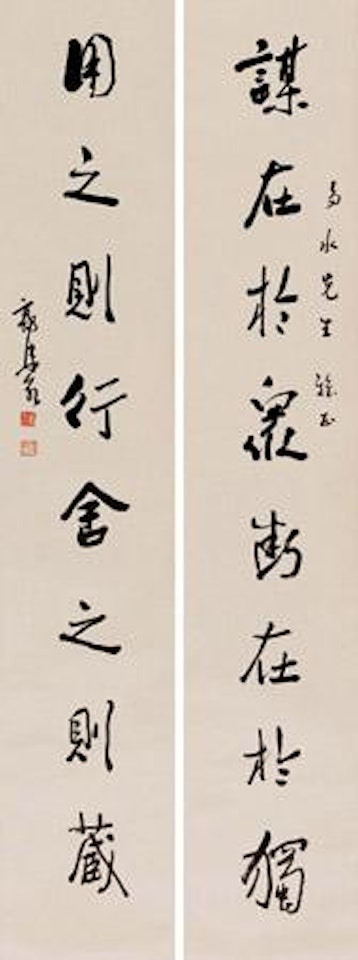 水先生 雅正
謀在於衆斷在於獨
用之則行舍之則藏